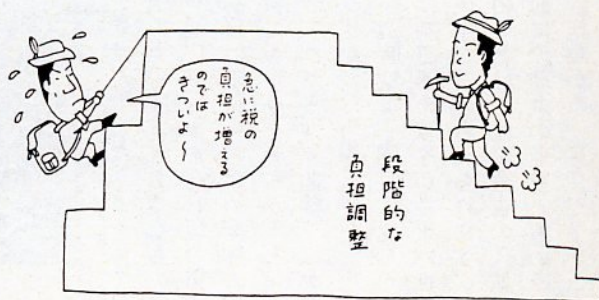 急に税の
負担が増える
のでは
きついよ〜
段階的な
負担調整